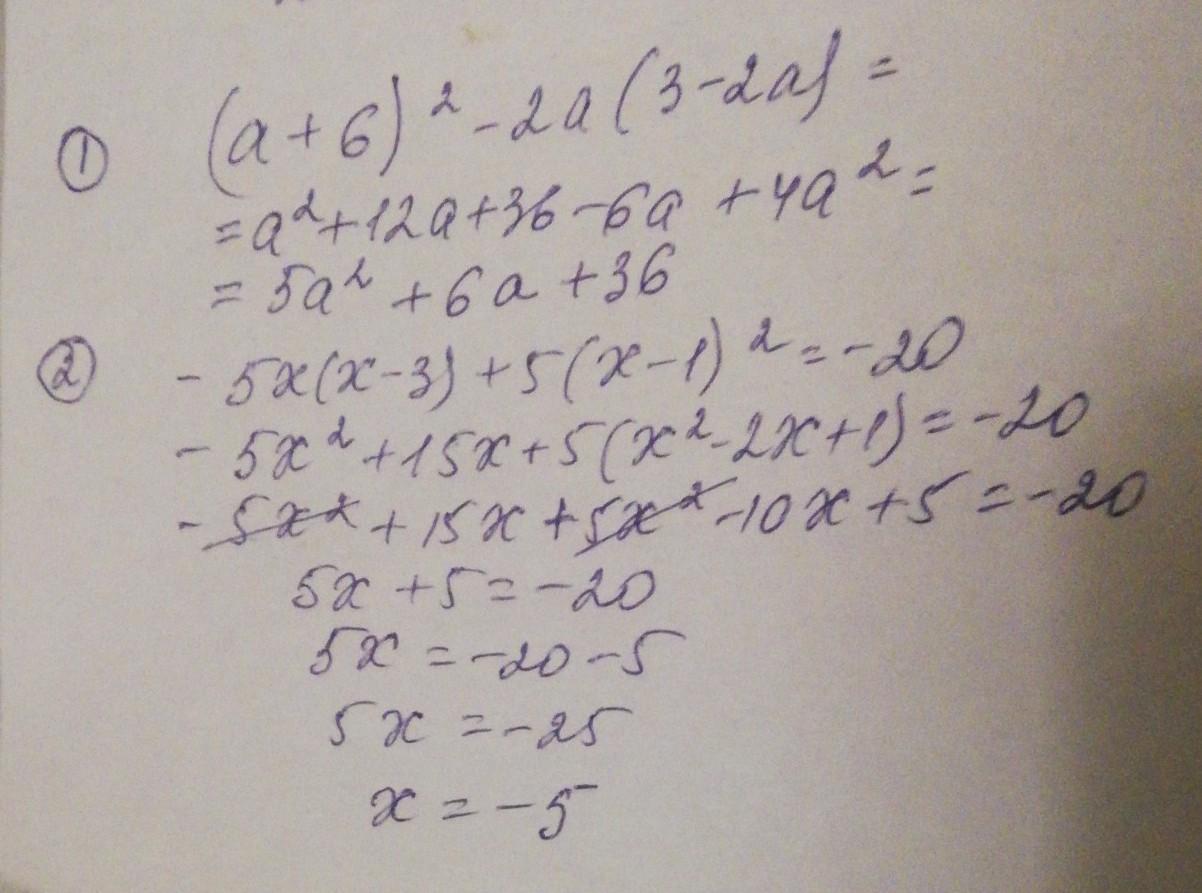 ① (a+6)² - 2a(3-2a) =
= a² + 12a + 36 - 6a + 4a² =
= 5a² + 6a + 36
② - 5x(x-3) + 5(x-1)² = -20
- 5x² + 15x + 5(x² - 2x + 1) = -20
- 5x² + 15x + 5x² - 10x + 5 = -20
5x + 5 = -20
5x = -20 - 5
5x = -25
x = -5